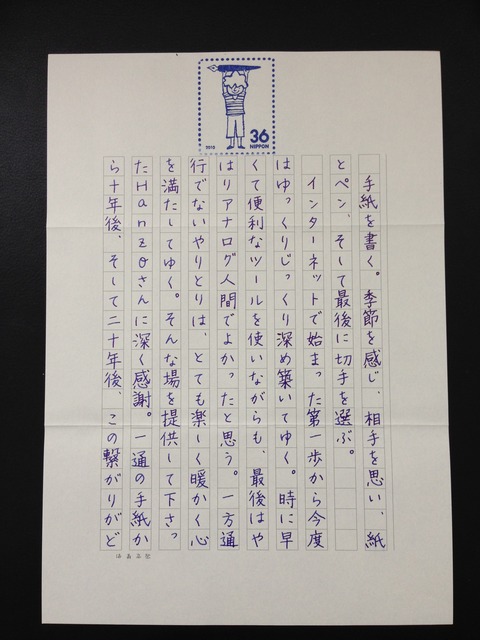 36
NIPPON
2010
　手紙を書く。季節を感じ、相手を思い、紙
とペン、そして最後に切手を選ぶ。
　インターネットで始まった第一歩から今度
はゆっくりじっくり深め築いてゆく。時に早
くて便利なツールを使いながらも、最後はや
はりアナログ人間でよかったと思う。一方通
行でないやりとりは、とても楽しく暖かく心
を満たしてゆく。そんな場を提供して下さっ
たHanzoさんに深く感謝。一通の手紙か
ら十年後、そして二十年後、この繋がりがど